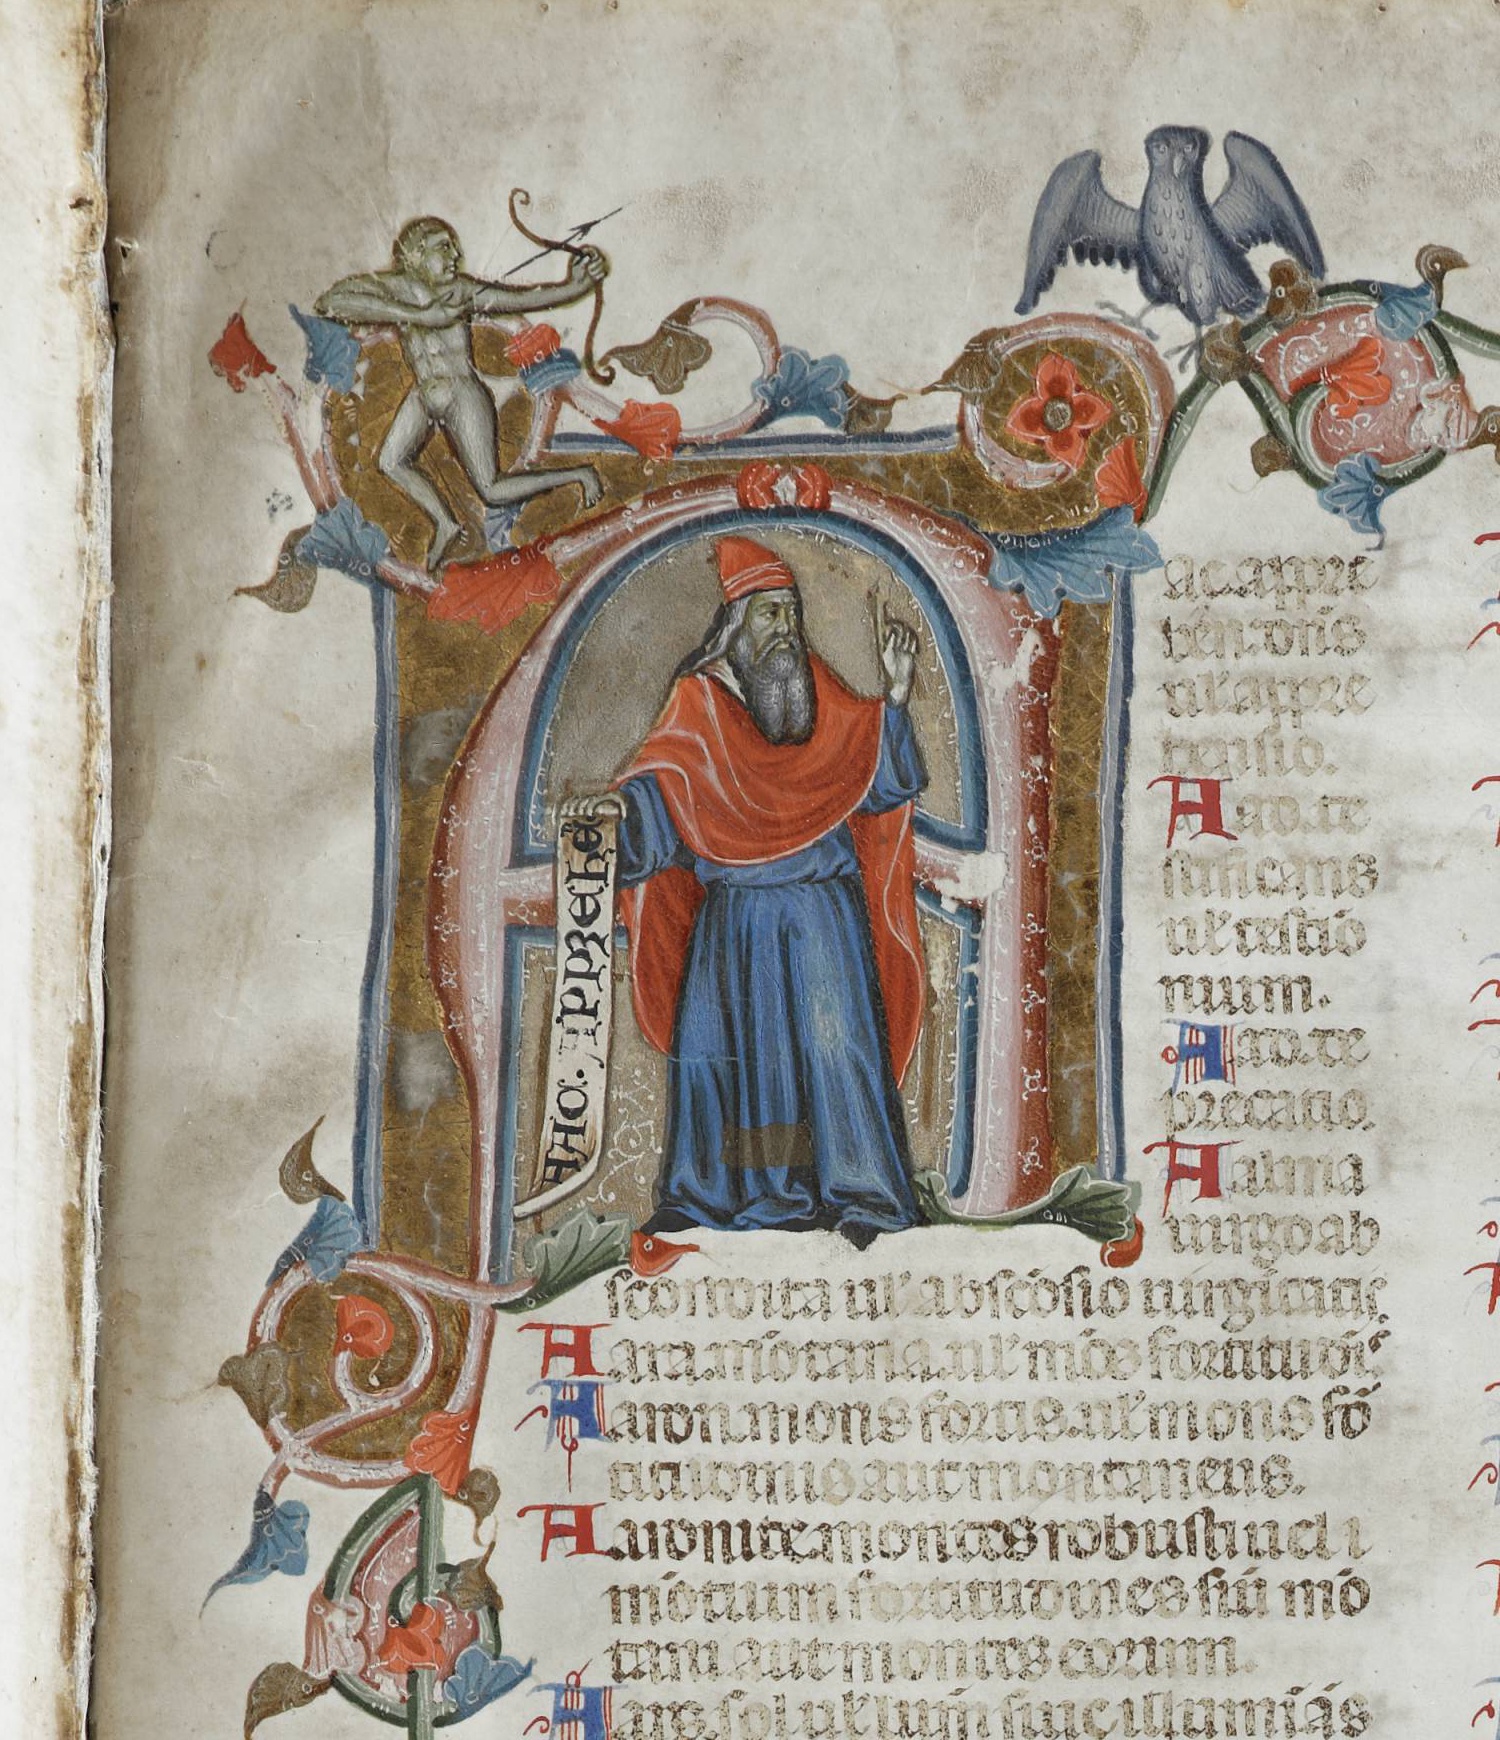 APPREHE
appre
hēn. dn̄s
ul' appre
hensio.
Aad. te
stificans
ul' testio
nium.
Aad. de
precatio.
Aalma
uirgo ab
scondita ul' abscōsio uirgītatis.
Aara mōtana. ul' mōs fortitudīs
Aaron mons fortis. ul' mons fō
titudinis aut montaneus.
Aaronite montes robusti uel i
mōtium fortitudines siū mō
tani aut montes eorum.
sol ul' siue illumīās